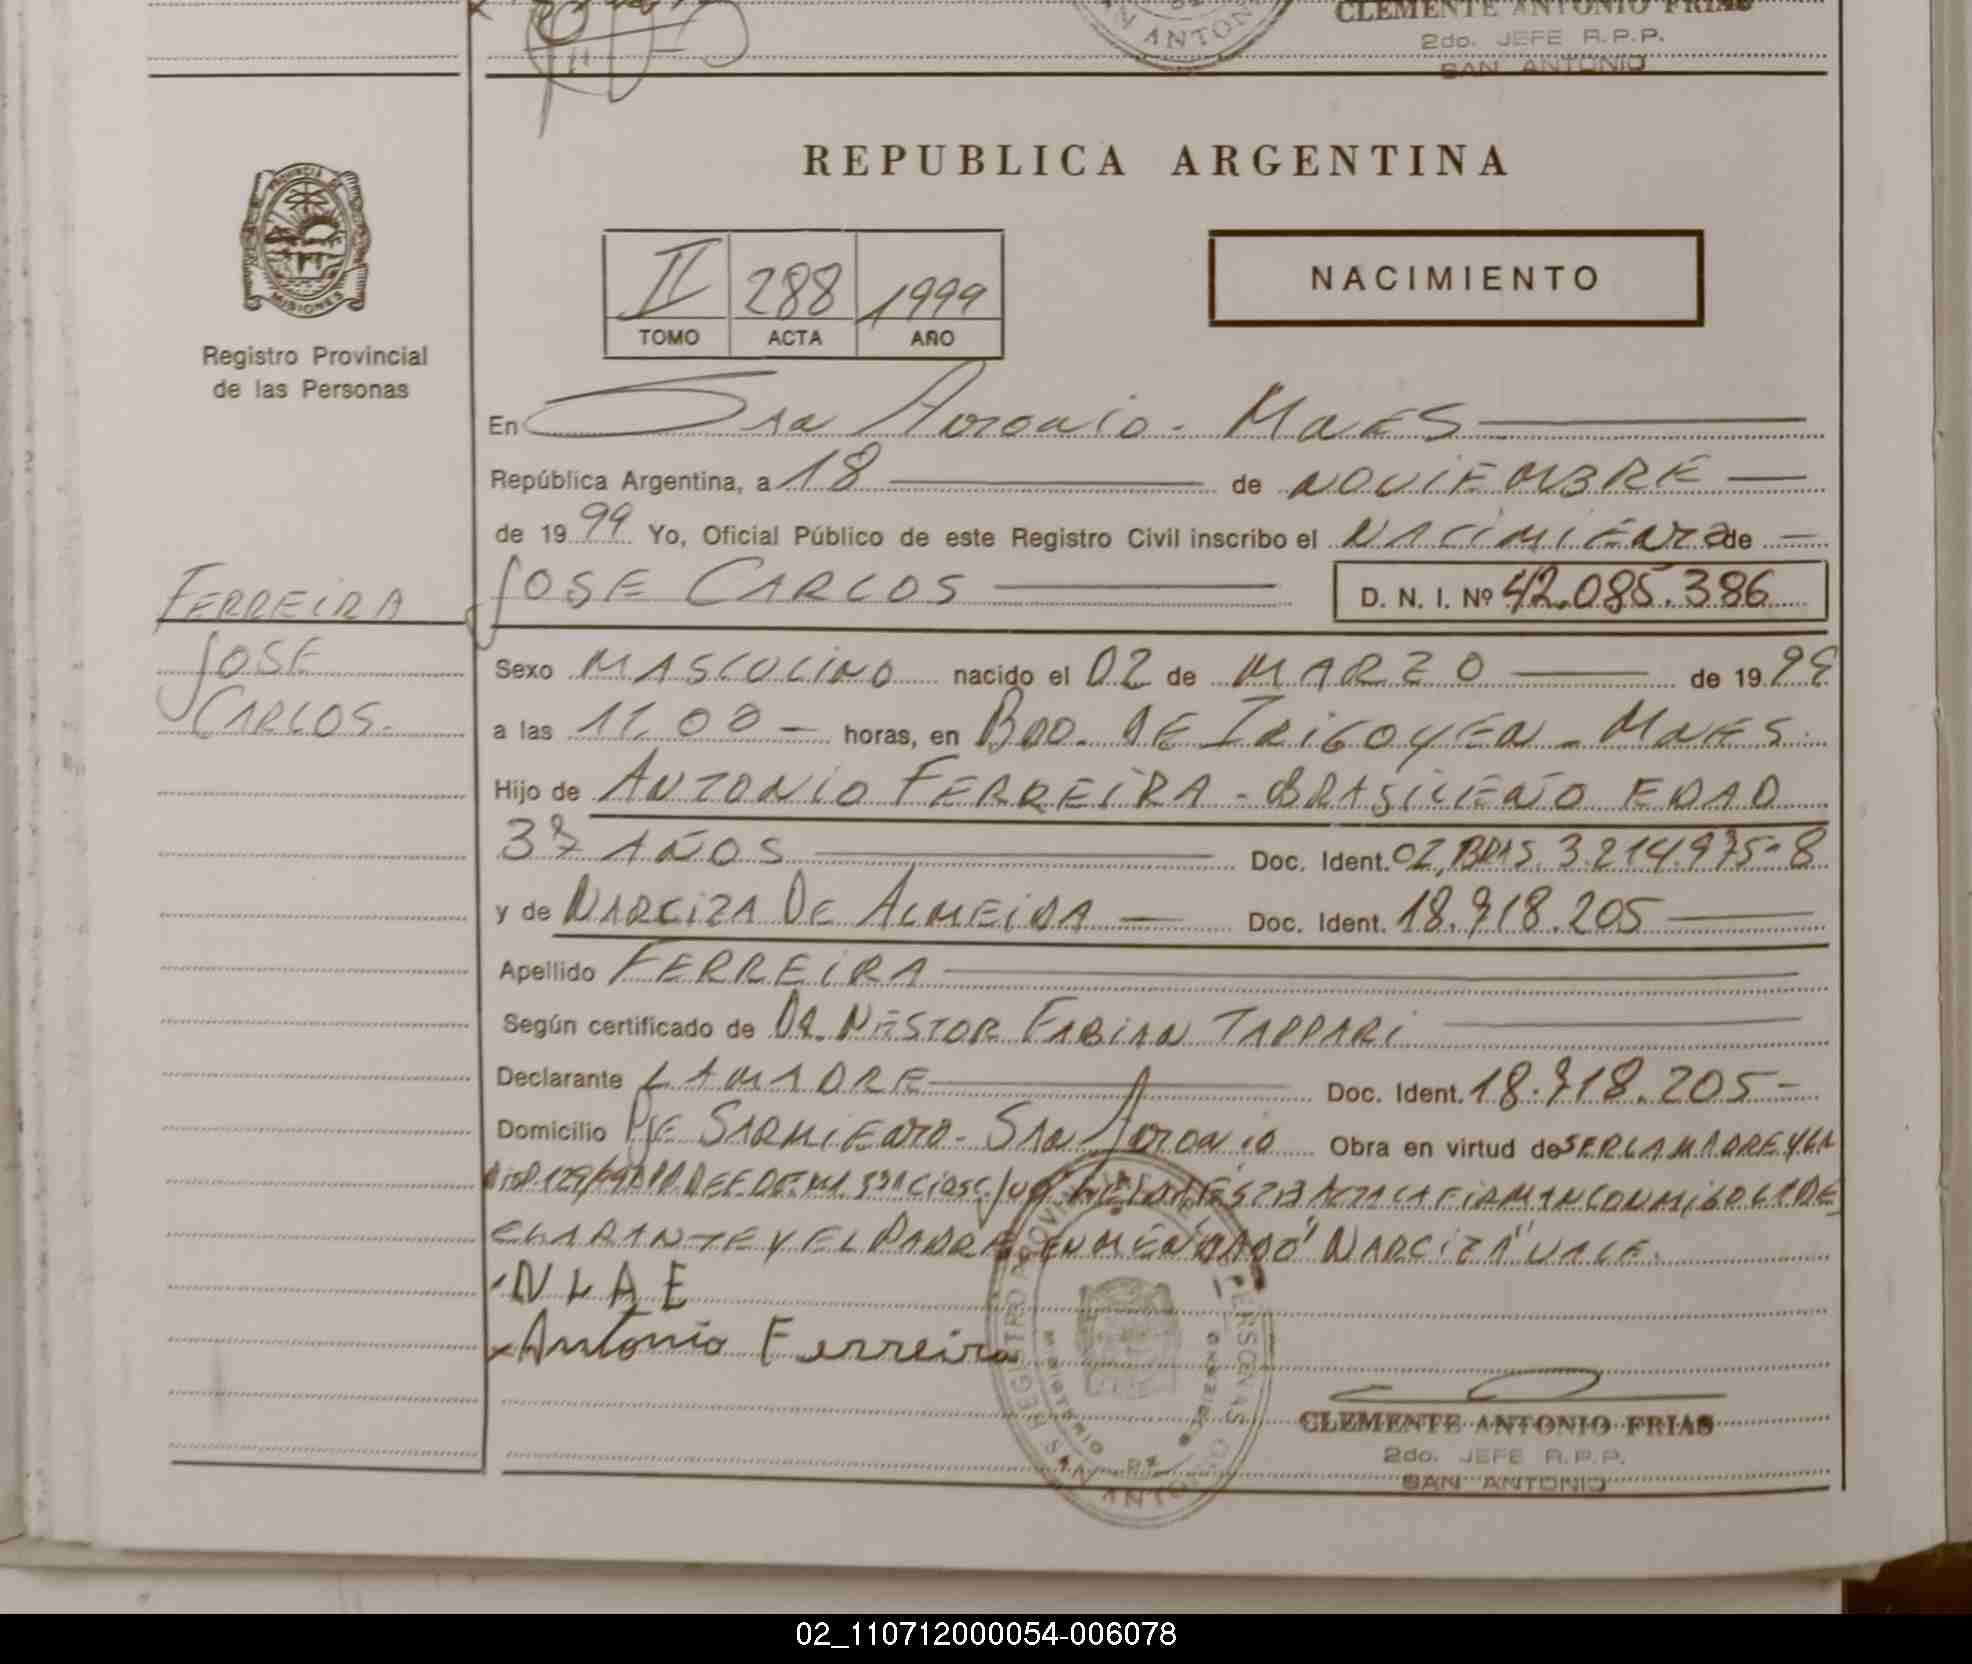 CLEMENTE ANTONIO FRIAS
2do. JEFE R.P.P.
SAN ANTONIO
REPUBLICA ARGENTINA
PROVINCIA DE
MISIONES
Registro Provincial
de las Personas
II 288 1999
TOMO ACTA AÑO
NACIMIENTO
En San Antonio - Mnes
República Argentina, a 18 de NOVIEMBRE
de 1999 Yo, Oficial Público de este Registro Civil inscribo el NACIMIENTO de
JOSE CARLOS D. N. I. Nº 42.085.386
FERREIRA
JOSE
CARLOS.
Sexo MASCULINO nacido el 02 de MARZO de 1999
a las 11,00 horas, en BDO. DE IRIGOYEN - MNES.
Hijo de ANTONIO FERREIRA - BRASILEÑO EDAD
37 AÑOS Doc. Ident. CI, BRAS. 3.214.975-8
y de NARCIZA DE ALMEIDA Doc. Ident. 18.718.205
Apellido FERREIRA
Según certificado de DR. NESTOR FABIAN TAPPARI
Declarante LA MADRE Doc. Ident. 18.718.205-
Domicilio PJE SARMIENTO - San Antonio Obra en virtud de SER LA MADRE Y LA
ESTA ACTA LA FIRMAN CONMIGO LA DE
CLARANTE Y EL PADRE ENMENDADO "NARCIZA" VALE.
NLAE
Antonio Ferreira
CLEMENTE ANTONIO FRIAS
2do. JEFE R.P.P.
SAN ANTONIO
02_110712000054-006078